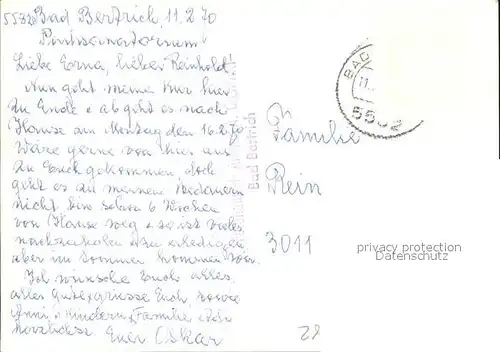 5582 Bad Bertrich, 11.2.70
Liebe Erna, lieber Reinhold!
Nun geht meine Kur hier
zu Ende u. ab geht es nach
Hause am Montag den 16.2.70
Wäre gerne von hier aus
zu Euch gekommen, doch
geht es zu meinem Bedauern
nicht, bin schon 6 Wochen
von Hause weg u. so ist vieles
nachzuholen u. zu erledigen
aber im Sommer kommen wir.
Ich wünsche Euch alles,
alles Gute u. grüsse Euch, sowie
Anni u. Kindern, Familie
herzlichst Euer Oskar
Bad Bertrich
BAD
11.
5582
Familie
Rein
3011
privacy protection watermark
28